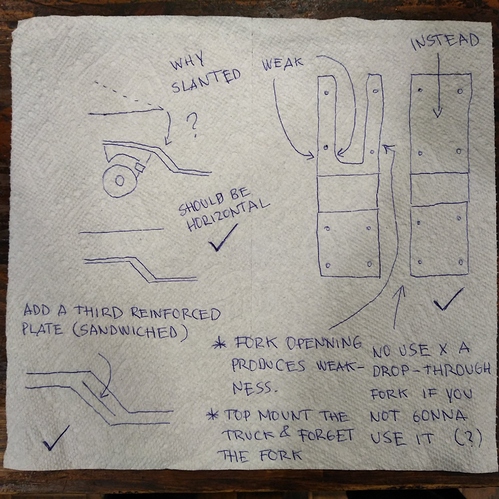 WHY
SLANTED
?
WEAK
INSTEAD
SHOULD BE
HORIZONTAL
ADD A THIRD REINFORCED
PLATE (SANDWICHED)
* FORK OPENNING
PRODUCES WEAK-
NESS.
* TOP MOUNT THE
TRUCK & FORGET
THE FORK
NO USE X A
DROP-THROUGH
FORK IF YOU
NOT GONNA
USE IT (?)